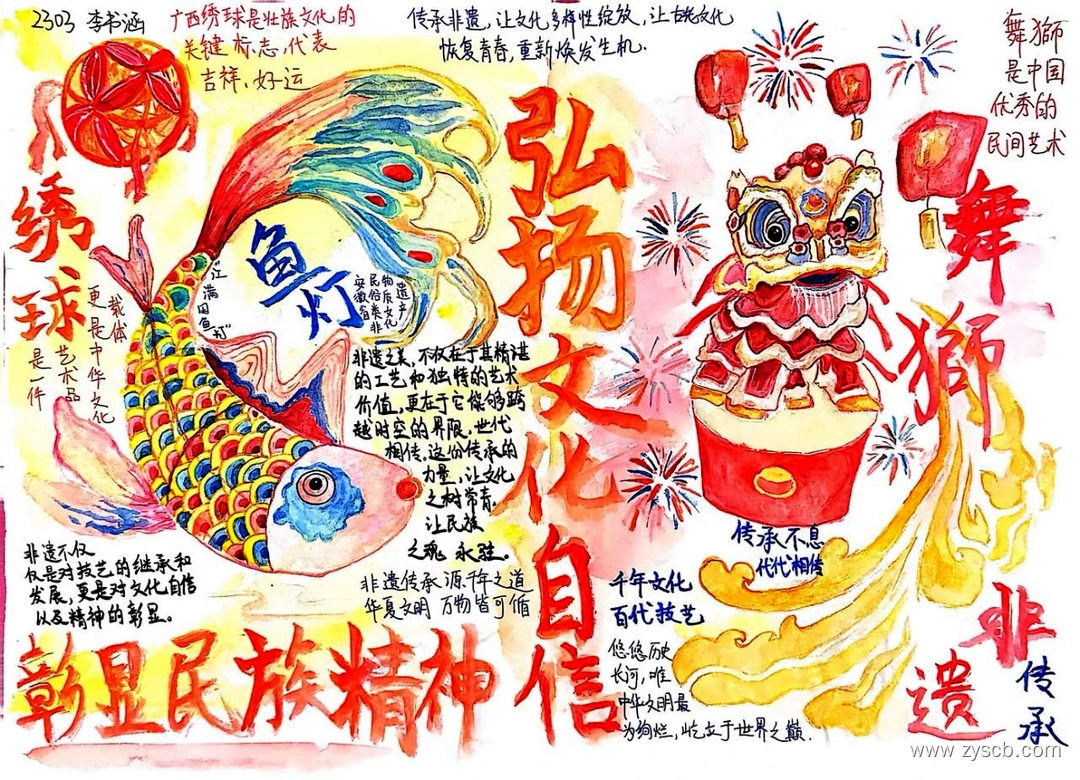 2303 李书涵
广西绣球是壮族文化的
关键标志,代表
吉祥、好运
传承非遗,让文化多样性绽放,让古老文化
恢复青春,重新焕发生机.
舞狮
是中国
优秀的
民间艺术
绣球
是一件
艺术品
更是中华文化
载体
鱼灯
"江满国鱼灯"
安徽省
民俗类非
物质文化
遗产
弘扬文化自信
舞狮
非遗之美,不仅在于其精湛
的工艺和独特的艺术
价值,更在于它能够跨
越时空的界限,世代
相传,这份传承的
力量,让文化
之树常青,
让民族
之魂永驻。
非遗不仅
仅是对技艺的继承和
发展,更是对文化自信
以及精神的彰显。
非遗传承 源千年之道
华夏文明 万物皆可循
彰显民族精神
传承不息
代代相传
千年文化
百代技艺
悠悠历史
长河,唯
中华文明最
为绚烂,屹立于世界之巅.
非遗
传承
www.zyscb.com